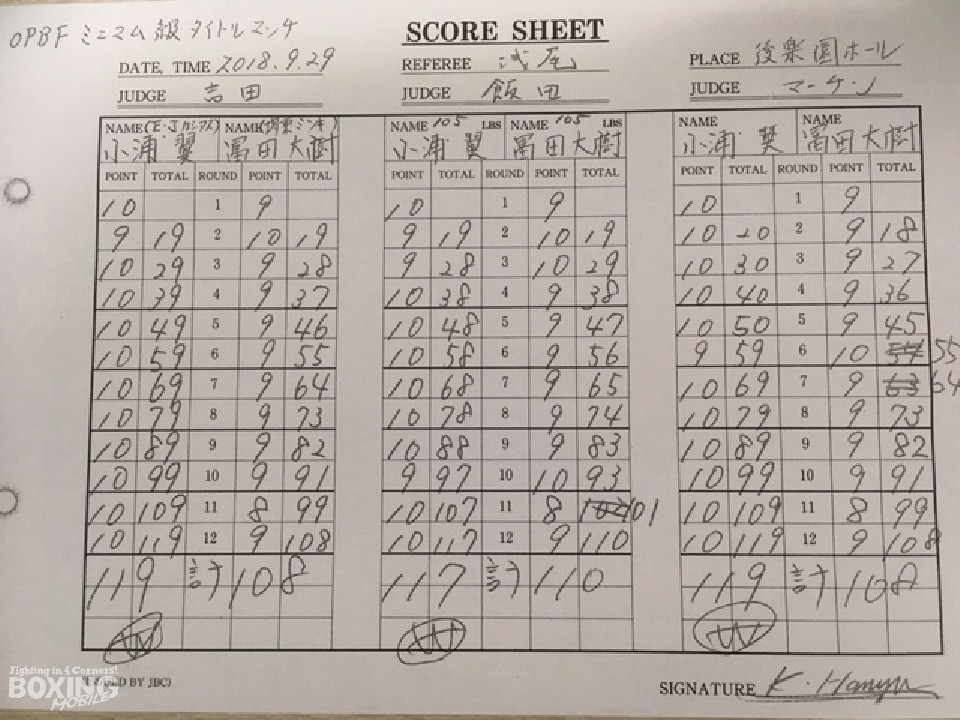 OPBF ミニマム級タイトルマッチ
SCORE SHEET
DATE, TIME 2018.9.29 REFEREE 浅尾 PLACE 後楽園ホール
JUDGE 吉田 JUDGE 飯田 JUDGE マーケン
NAME (E・Jカシアス) NAME NAME 105 LBS NAME 105 LBS NAME NAME
小浦 翼 冨田大樹 小浦 翼 冨田大樹 小浦 翼 冨田大樹
POINT TOTAL ROUND POINT TOTAL POINT TOTAL ROUND POINT TOTAL POINT TOTAL ROUND POINT TOTAL
10 1 9 10 1 9 10 1 9
9 19 2 10 19 9 19 2 10 19 10 20 2 9 18
10 29 3 9 28 9 28 3 10 29 10 30 3 9 27
10 39 4 9 37 10 38 4 9 38 10 40 4 9 36
10 49 5 9 46 10 48 5 9 47 10 50 5 9 45
10 59 6 9 55 10 58 6 9 56 9 59 6 10 55
10 69 7 9 64 10 68 7 9 65 10 69 7 9 63 64
10 79 8 9 73 10 78 8 9 74 10 79 8 9 73
10 89 9 9 82 10 88 9 9 83 10 89 9 9 82
10 99 10 9 91 9 97 10 10 93 10 99 10 9 91
10 109 11 8 99 10 107 11 8 102 101 10 109 11 8 99
10 119 12 9 108 10 117 12 9 110 10 119 12 9 108
119 計 108 117 計 110 119 計 108
W W W
Fighting in 4 Corners!
BOXING
MOBILE
(ISSUED BY JBC)
SIGNATURE K. Hanyu